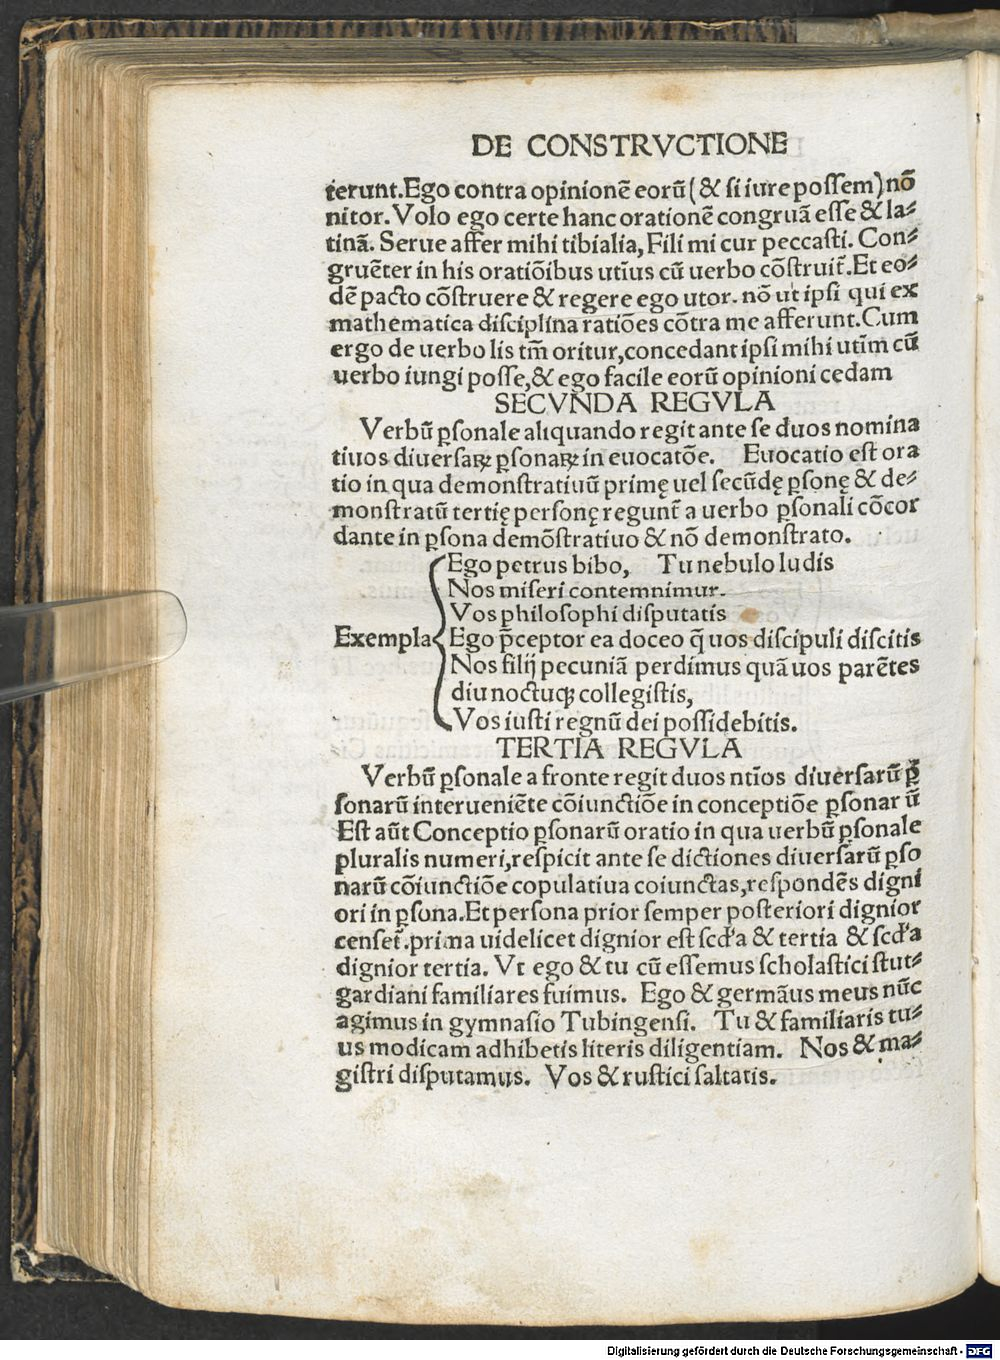 DE CONSTRVCTIONE
terunt.Ego contra opinionē eorū(& si iure possem)nō
nitor.Volo ego certe hanc orationē congruā esse & la⸗
tinā. Serue affer mihi tibialia, Fili mi cur peccasti. Con⸗
gruēter in his oratiōibus utīus cū uerbo cōstruit̄.Et eo⸗
dē pacto cōstruere & regere ego utor. nō ut ipsi qui ex
mathematica disciplina ratiōes cōtra me afferunt.Cum
ergo de uerbo lis tm̄ oritur,concedant ipsi mihi utīm cū
uerbo iungi posse,& ego facile eorū opinioni cedam
SECVNDA REGVLA
Verbū ꝑsonale aliquando regit ante se duos nomina
tiuos diuersaꝝ ꝑsonaꝝ in euocatōe. Euocatio est ora
tio in qua demonstratiuū primę uel secūdę ꝑsonę & de⸗
monstratū tertię personę regunt̄ a uerbo ꝑsonali cōcor
dante in ꝑsona demōstratiuo & nō demonstrato.
Exempla
Ego petrus bibo, Tu nebulo ludis
Nos miseri contemnimur.
Vos philosophi disputatis
Ego p̄ceptor ea doceo q̄ uos discipuli discitis
Nos filij pecuniā perdimus quā uos parētes
diu noctuqꝫ collegistis,
Vos iusti regnū dei possidebitis.
TERTIA REGVLA
Verbū ꝑsonale a fronte regit duos ntīos diuersarū ꝑ
sonarū interueniēte cōiunctiōe in conceptiōe ꝑsonar ū
Est aūt Conceptio ꝑsonarū oratio in qua uerbū ꝑsonale
pluralis numeri,respicit ante se dictiones diuersarū ꝑso
narū cōiunctiōe copulatiua coiunctas,respondēs digni
ori in ꝑsona.Et persona prior semper posteriori dignior
censet̄.prima uidelicet dignior est scďa & tertia & scďa
dignior tertia. Vt ego & tu cū essemus scholastici stut⸗
gardiani familiares fuimus. Ego & germāus meus nūc
agimus in gymnasio Tubingensi. Tu & familiaris tu⸗
us modicam adhibetis literis diligentiam. Nos & ma⸗
gistri disputamus. Vos & rustici saltatis.
Digitalisierung gefördert durch die Deutsche Forschungsgemeinschaft - DFG